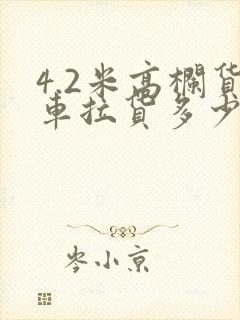 4.2米高欄货
車拉货多少
岑小京